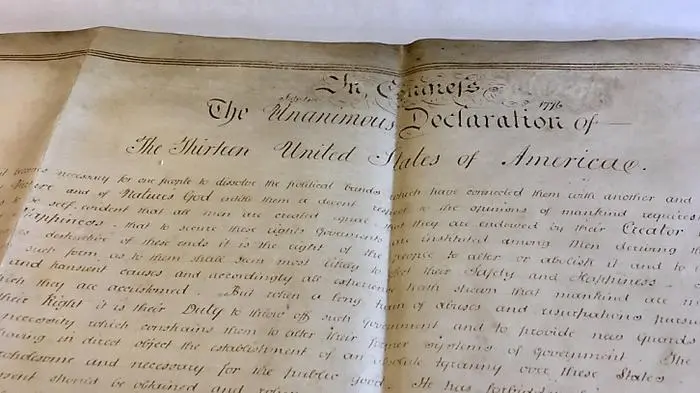 In Congress
1776
The Unanimous Declaration of
The Thirteen United States of America.
becomes necessary for one people to dissolve the political bands which have connected them with another and
Nature and of Natures God entitle them a decent respect to the opinions of mankind requires
self evident that all men are created equal that they are endowed by their Creator
Happiness. that to secure these rights Governments are instituted among Men deriving
destructive of these ends it is the right of the people to alter or abolish it and to
such form, as to them shall seem most likely to effect their Safety and Happiness.
and transient causes and accordingly all experience hath shewn that mankind are
which they are accustomed. But when a long train of abuses and usurpations
their Right it is their Duty to throw off such government and to provide new Guards
necessity which constrains them to alter their former systems of Government. The
having in direct object the establishment of an absolute tyranny over these States
wholesome and necessary for the public good. He has
should be obtained and